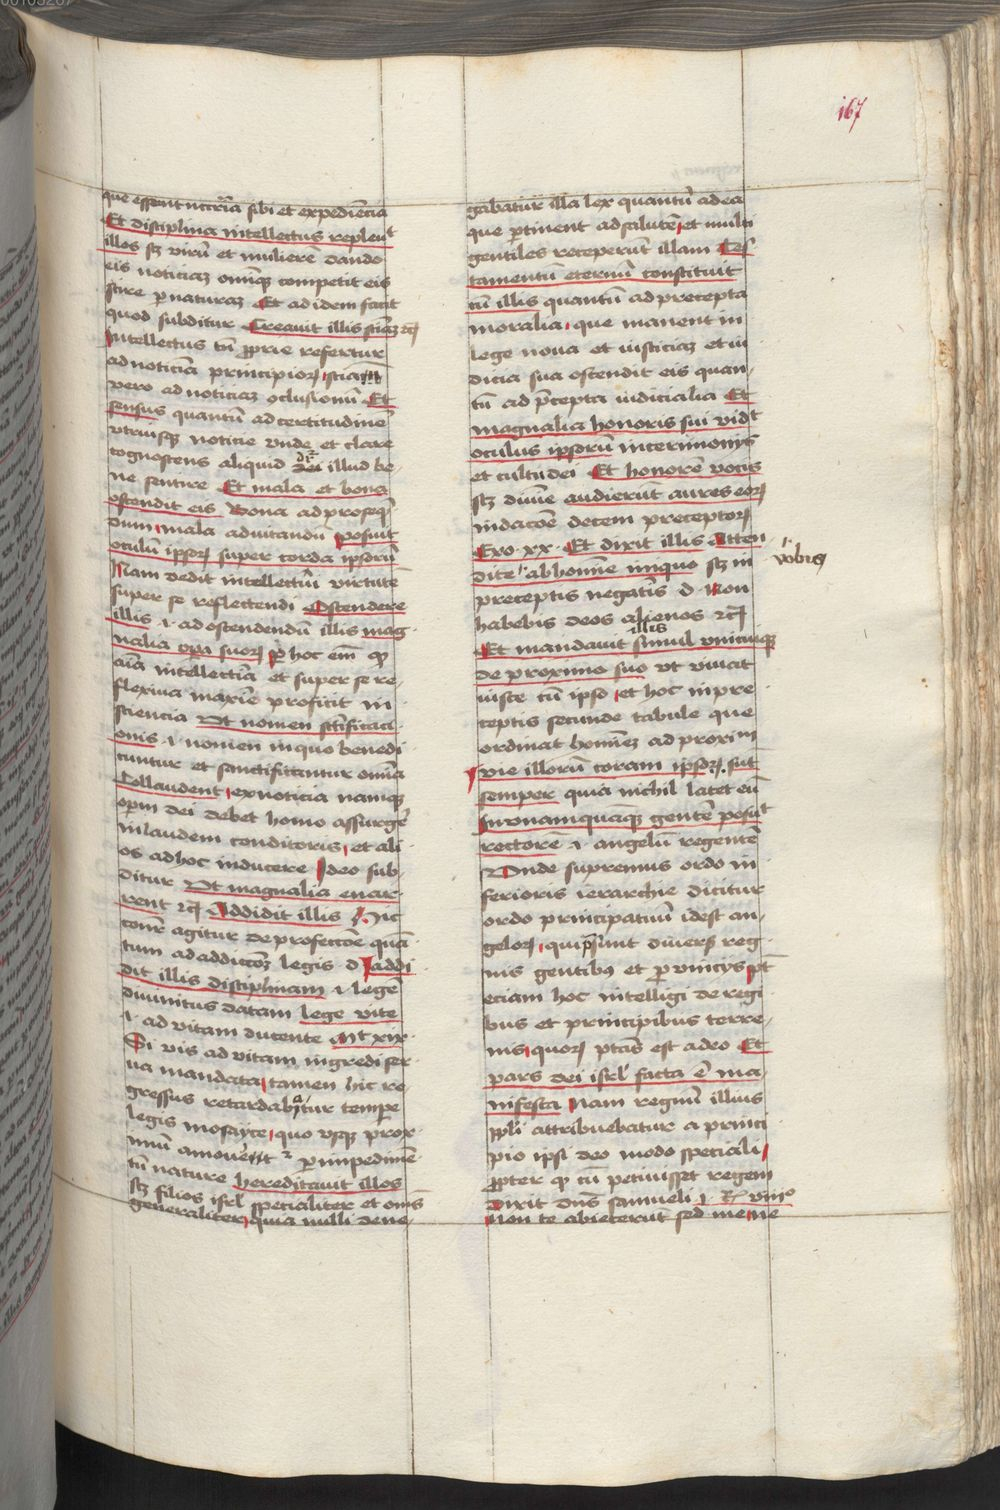 167
que essent nccria sibi et expediencia
Et disciplina intellectus repleuit
illos sz virū et mulierē dando
eis noticiaz omniū competit eis
scire p naturaz Et ad idem facit
quod subditur Creauit illis sciaz
Intellectus tn̄ pprie refertur
ad noticiā principioꝝ scia
vero ad noticiaz oclusionū Et
sensus quantū ad certitudinē
vtriusqz noticie vnde et clare
cognoscens aliquid illud be
ne sentire Et mala et bona
ostendit eis Bona ad proseqn̄
dum mala ad vitandū posuit
oculū ipsoꝝ super corda ipsorū
Nam dedit intellectui virtutē
super se reflectendi Ostendere
illis .i. ad ostendendū illis mag
nalia opa suoꝝ p hoc em̄ qp
aīa intellectiā et super se re
flexiua maxīe proficit in
sciencia Vt nomen sctificaci
onis .i. nomen in quo benedi
cuntur et sanctificantur omīa
Collaudent ex noticia namqz
opm dei debet homo assurgē
in laudem conditoris et ali
os ad hoc inducere Ideo sub
ditur Vt magnalia enar
rent Addidit illis Hic
conr agitur de profectōe quā
tum ad addictōz legis d addi
dit illis disciplinam .i. legē
diuinitus datam lege vite
.i. ad vitam ducente Mt xix
Si vis ad vitam ingredi ser
ua mandata tamen hic re
gressus retardabatur tempe
legis mosayce quo vsqz prox
imū p impedimē
tū nature hereditauit illos
sz filios isrl specialiter et oms
generaliter quia nulli dene
gabatur illa lex quantū ad ea
que ptinent ad salutē et multi
gentiles receperūt illam Tes
tamentū eternū constituit
cū illis quantū ad precepta
moralia que manent in
lege noua et iusticiaz et iu
dicia sua ostendit eis quan
tū ad pcepta iudicialia Et
magnalia honoris sui vidt
oculus ipsorū in cerimonys
et cultu dei Et honorē vocis
sz diuine audierūt aures eoꝝ
in dacōe decem preceptoꝝ
Exo xx Et dixit illis Atten
dite ab homine iniquo sz in
vobis
preceptis negatis d Non
habebis deos alienos
Et mandauit illis simul vnicuiqz
de proximo suo vt viuat
iuste cū ipso et hoc in pre
ceptis secunde tabule que
ordinat homiez ad proximū
vie illorū coram ipsoꝝ sūt
semper quia nichil latet eū
In vnamquāqz gentē posut
rectorē .i. angelū regentē
Vnde supremus ordo in
ferioris ierarchie dicitur
ordo principatuū idest an
geloꝝ qui psunt diuers reg
nis gentibus et puincys pt
eciam hoc intelligi de regi
bus et principibus terre
nis quoꝝ ptas est a deo Et
pars dei isrl facta ē ma
nifesta Nam regnū illius
ppli attribuebatur a princi
pio ipsi deo modo speciali
ppter qp cū petiuisset regem
dixit dns samueli .i. R viiio
Non te abiecerūt sed me ne